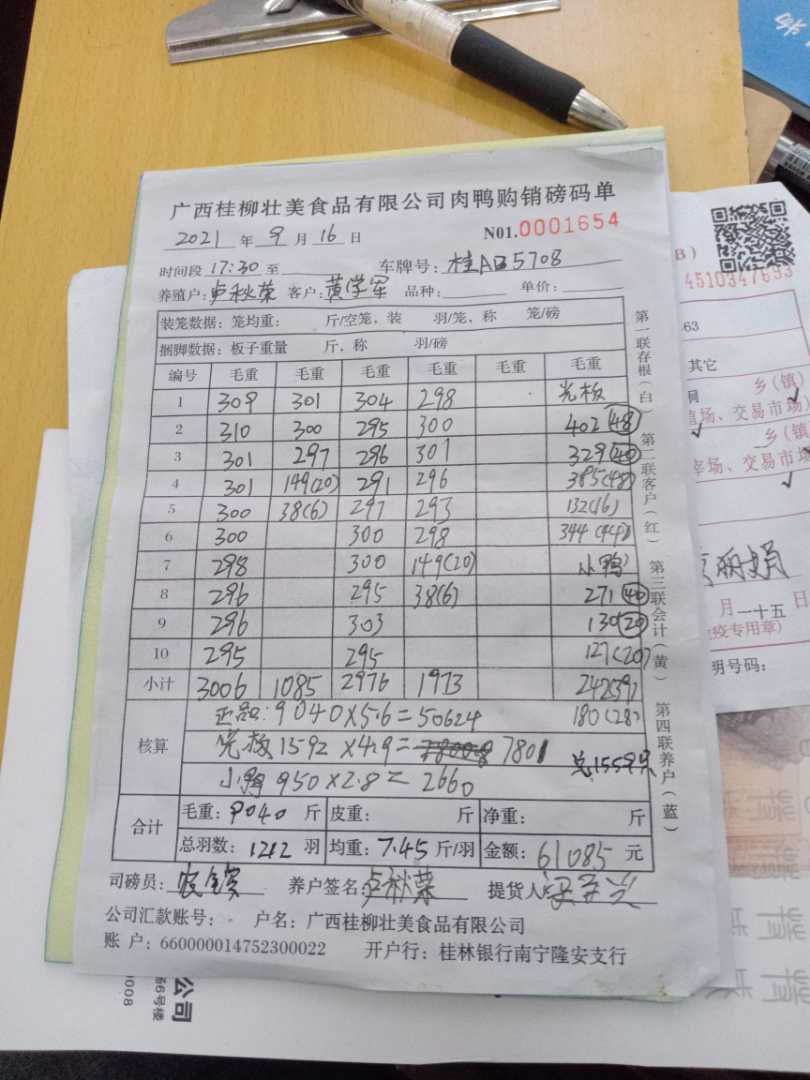 广西桂柳壮美食品有限公司肉鸭购销磅码单
2021 年 9 月 16 日 N01.0001654
时间段 17:30 至 车牌号: 桂AB5708
养殖户: 卢秋荣 客户: 黄学军 品种: 单价:
装笼数据: 笼均重: 斤/空笼, 装 羽/笼, 称 笼/磅
捆脚数据: 板子重量 斤, 称 羽/磅
编号 毛重 毛重 毛重 毛重 毛重 毛重
1 309 301 304 298 光板
2 310 300 295 300 402(48)
3 301 297 296 301 329(40)
4 301 149(20) 291 296 385(48)
5 300 38(6) 297 293 132(16)
6 300 300 298 344
7 298 300 149(20) 小鸭
8 296 295 38(6) 271(40)
9 296 303 130(20)
10 295 295 127(20)
小计 3006 1085 2976 1973 242(39)
核算
正品: 9040×5.6=50624 180(28)
光板 1592 ×4.9= 7801
小鸭 950×2.8= 2660
总1559只
合计
毛重: 9040 斤 皮重: 斤 净重: 斤
总羽数: 1212 羽 均重: 7.45 斤/羽 金额: 61085 元
司磅员: 养户签名: 卢秋荣 提货人:
公司汇款账号: 户名: 广西桂柳壮美食品有限公司
账 户: 660000014752300022 开户行: 桂林银行南宁隆安支行
第一联存根(白) 第二联客户(红) 第三联会计(黄) 第四联养户(蓝)
B)
4510347693
63
其它
乡(镇)
殖场、交易市场
乡(镇)
宰场、交易市场
丽娟
月一十五日
疫专用章)
明号码:
公司
6号楼
0008